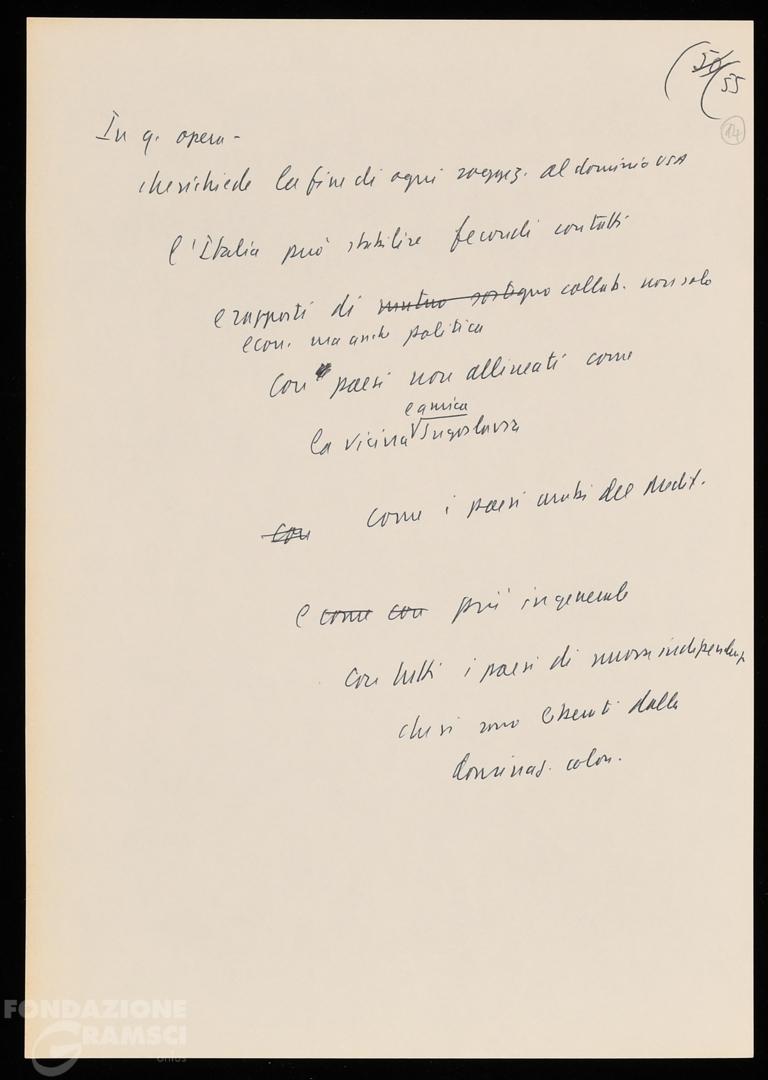 (50/55
14
In q. opera -
che richiede la fine di ogni soggez. al dominio USA
l'Italia può stabilire fecondi contatti
e rapporti di mutuo sostegno collab. non solo
econ. ma anche politica
con paesi non allineati come
e amica
la vicina Jugoslavia
con come i paesi arabi del Medit.
e come con più in generale
con tutti i paesi di nuova indipendenz
che si sono liberati dalla
dominaz. colon.
FONDAZIONE
GRAMSCI
onlus